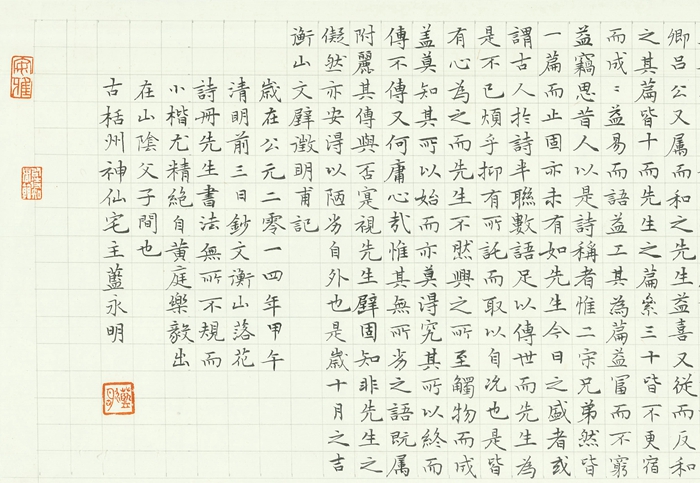 卿吕公又属而和之先生益喜又從而反和
之其篇皆十而先生之篇絫三十皆不更宿
而成〻益易而語益工其為篇益富而不窮
益竊思昔人以是詩稱者惟二宋兄弟然皆
一篇而止固亦未有如先生今日之盛者或
謂古人於詩半聯數語足以傳世而先生為
是不已煩乎抑有所託而取以自况也是皆
有心為之而先生不然興之所至觸物而成
盖莫知其所以始而亦莫得究其所以終而
傳不傳又何庸心哉惟其無所劣之語既属
附麗其傳與否寔視先生壁固知非先生之
儗然亦安得以陋劣自外也是歲十月之吉
衡山文壁徵明甫記
歲在公元二零一四年甲午
清明前三日鈔文衡山落花
詩冊先生書法無所不規而
小楷尤精絕自黄庭樂毅出
在山陰父子間也
古栝州神仙宅主藍永明